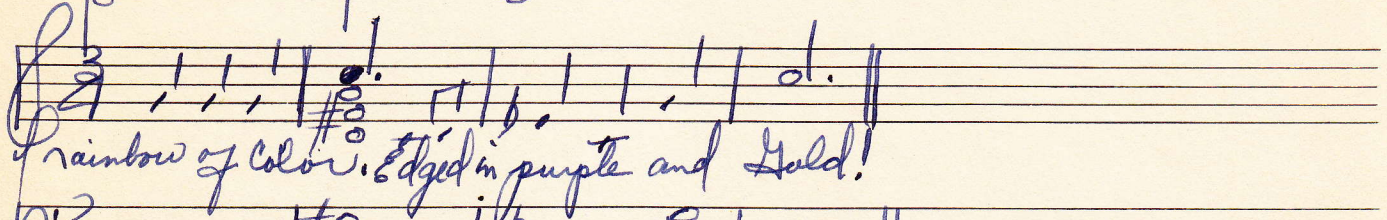 rainbow of Color. Edged in purple and Gold!